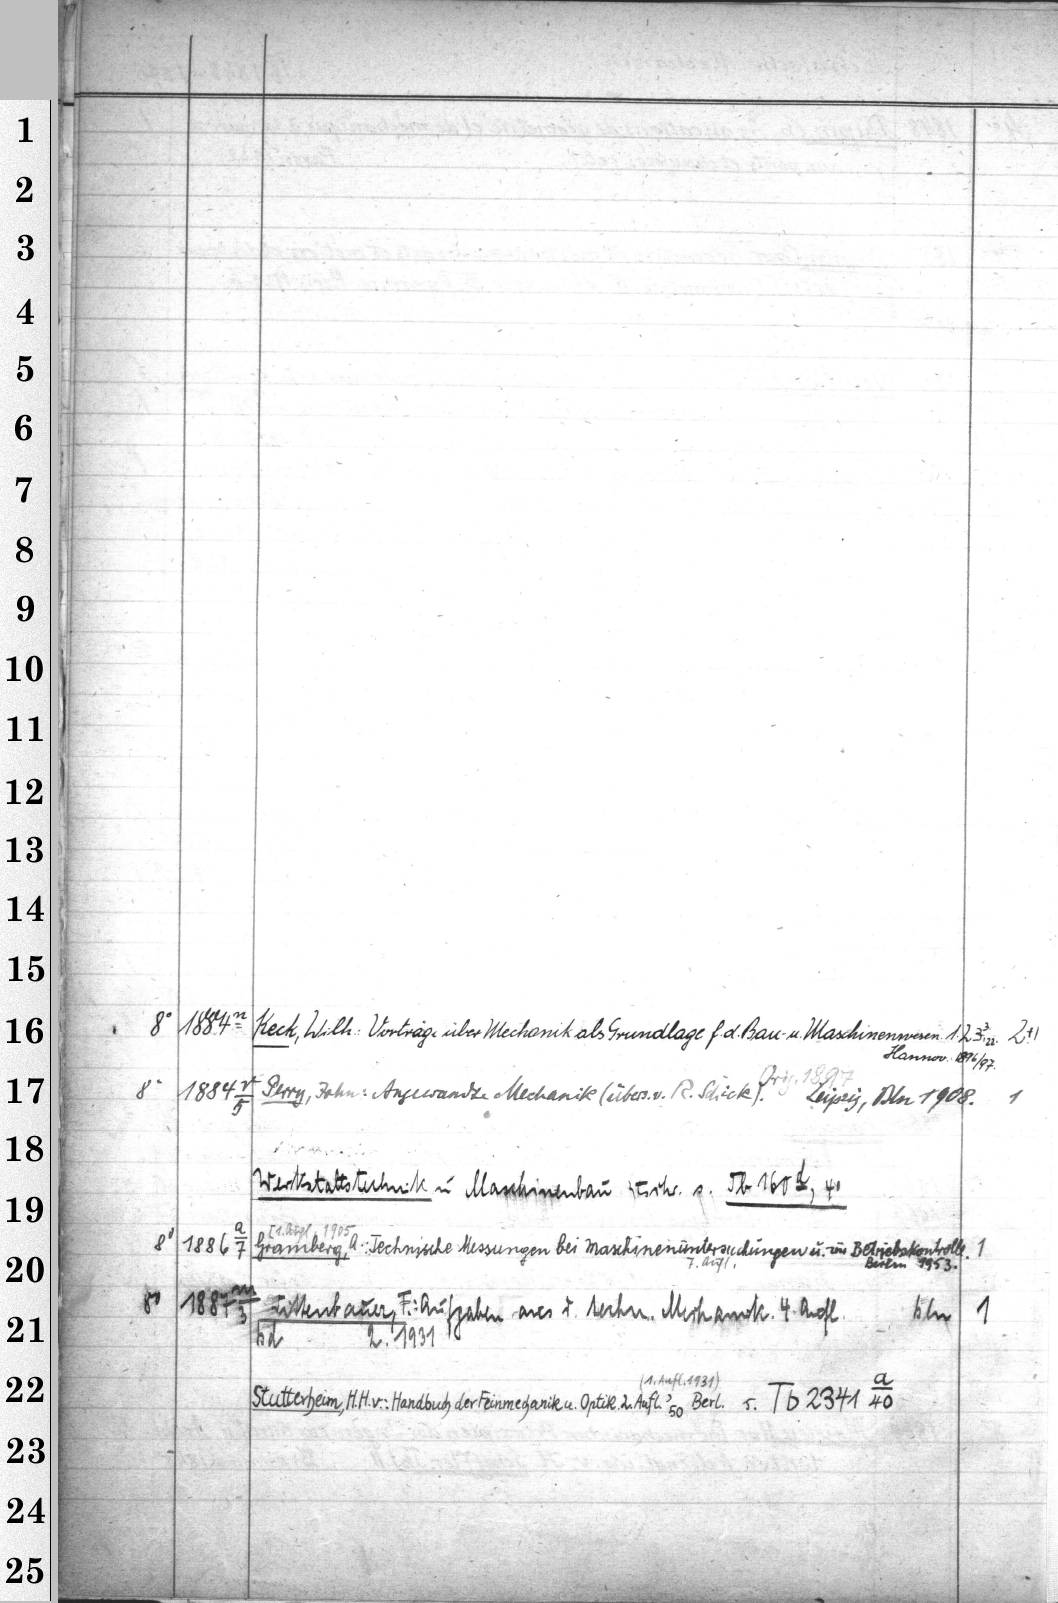 1
2
3
4
5
6
7
8
9
10
11
12
13
14
15
16 8° 1884 n Keck, Wilh.: Vorträge über Mechanik als Grundlage f. d. Bau- u. Maschinenwesen. 1. 2 3 2+1
Hannov. 1896/97.
Orig. 1897
17 8° 1884 v/5 Perry, John: Angewandte Mechanik (übers. v. R. Schick). Leipzig, Bln 1908. 1
18
Werkstattstechnik u Maschinenbau s. Tb 160, 4°
19
[1. Aufl. 1905
20 8° 1886 a/7 Gramberg, A.: Technische Messungen bei Maschinenuntersuchungen u. zur Betriebskontrolle. 1
7. Aufl. Berlin 1953.
8° 1887 m/3 Wittenbauer, F.: Aufgaben aus d. techn. Mechanik. 4. Aufl. bln 1
21 bd 2. 1931
(1. Aufl. 1931)
22 Stutterheim, H.H.v.: Handbuch der Feinmechanik u. Optik. 2. Aufl. '50 Berl. s. Tb 2341 a/40
23
24
25